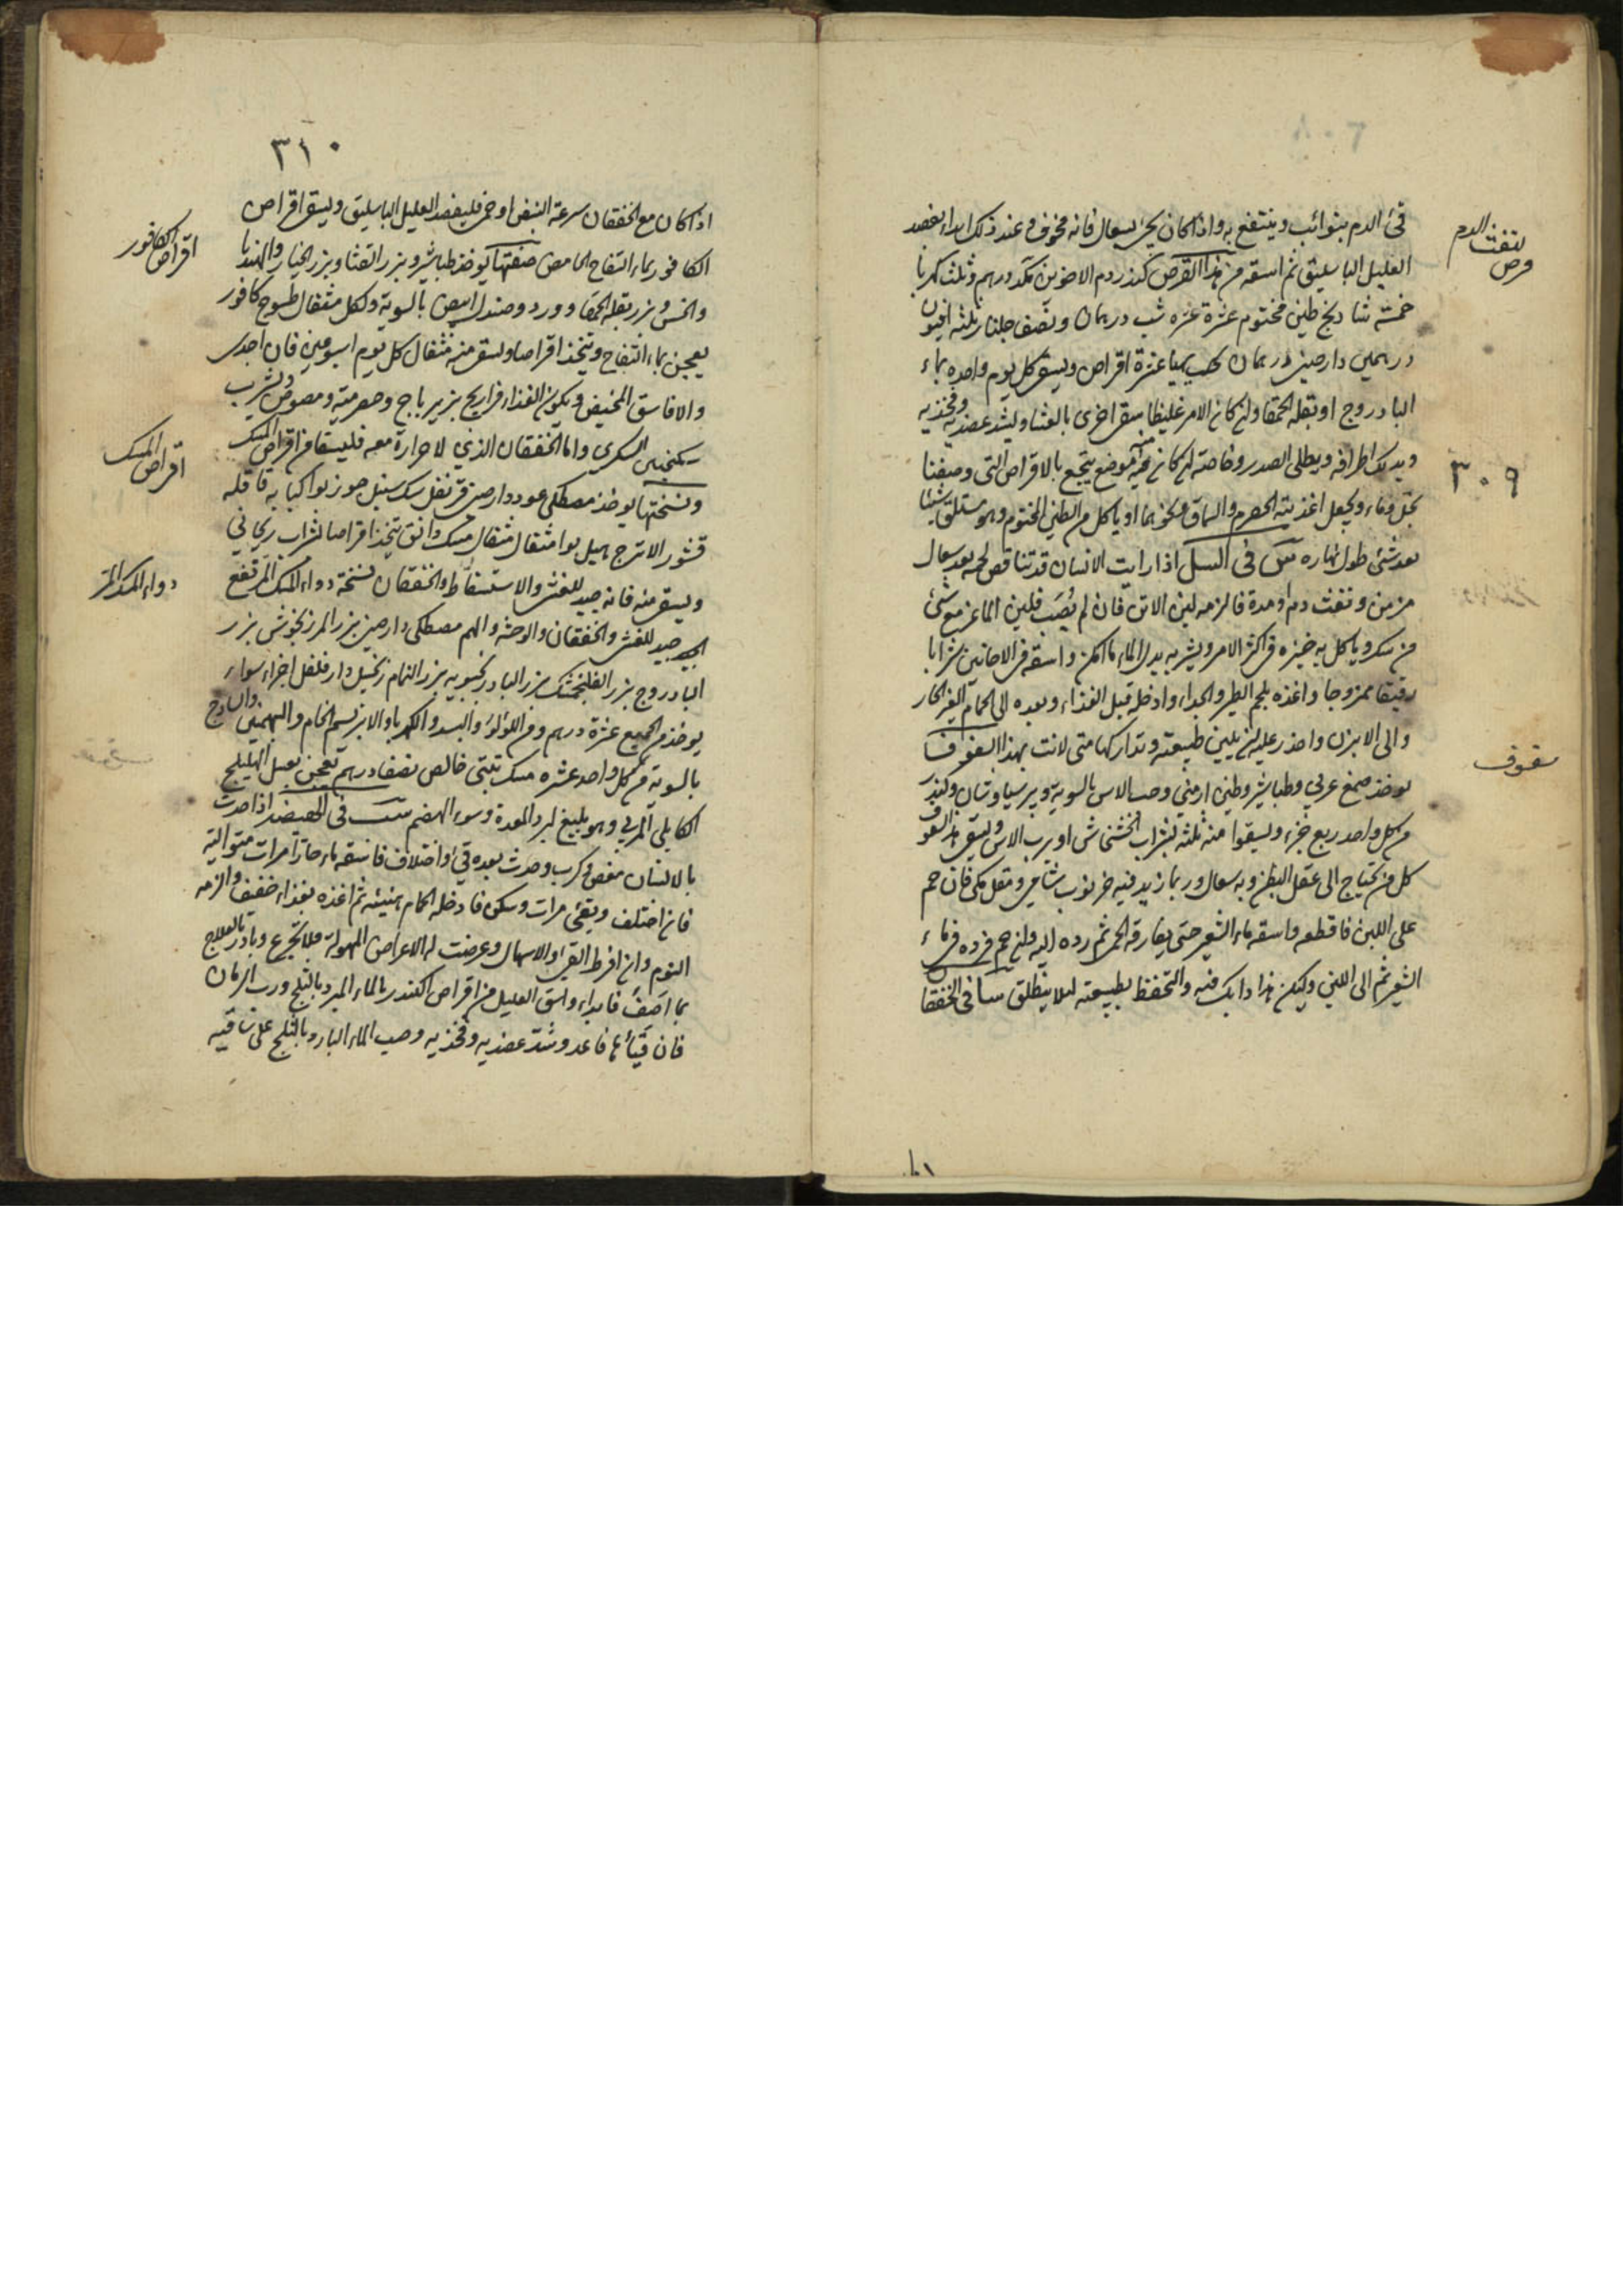 قئ الدم بنوائب وينتفع به واذا كان يجئ بسعال فانه مخوف وعند ذلك ابداء بفصد
العليل الباسليق ثم اسقه من هذا القرص كندر دم الاخوين درهم وثلث كهربا
خمسة شادنج طين مختوم عشرة عشره شب درهمان ونصف جلنار ثلثه افيون
درهمين دارصيني درهمان عشرة اقراص ويسقى كل يوم واحده بماء
البادروج او بقلة الحمقا وان كان الامر غليظا سقى اخرى بالعشا ويشد عضديه وفخذيه
ويدلك اطرافه ويطلى الصدر وخاصة ان كان فيه موضع يتجع بالاقراص التي وصفنا
بخل وماء ويجعل اغذيته الحصرم والسماق ونحوهما او ياكل من الطين المختوم وهو مستلق شيئا
بعد شئ طول نهاره في السل اذا رايت الانسان قد تناقص لحمه بعد سعال
مزمن ونفث دم او مدة فالزمه لبن الاتن فان لم يُصَب فلبن الماعز مع شئ
من سكر وياكل به خبزه في اكثر الامر ويشربه بدل الماء ما امكن واسقه في الاحايين شرابا
رقيقا ممزوجا واغذه بلحم الطير والجداء وادخله قبل الغذاء وبعده الى الحمام الغير الحار
والى الابزن واحذر عليه ان يلين طبيعته وتداركها متى لانت بهذا السفوف
يوخذ صمغ عربي وطباشير وطين ارمني وحب الاس بالسوية وبرسياوشان وكندر
من كل واحد ربع جزء ويسقوا منه ثلثه بشراب الخشخاش او برب الاس ويسقى هذا السفوف
كل من يحتاج الى عقل البطن وبه سعال وربما زيد فيه خرنوب شامي ومقل مكي فان حم
على اللبن فاقطعه واسقه ماء الشعير حتى يفارقه الحمى ثم رده اليه وان حم فرده في ماء
الشعير ثم الى اللبن وليكن هذا دابك فيه والتحفظ بطبيعته لئلا ينطلق في الخفقان
لنفث الدم
قرص
٣٠٩
سفوف
٣١٠
اذا كان مع الخفقان سرعة النبض او حمى فليفصد العليل الباسليق ويسقى اقراص
الكافور بماء التفاح الحامض صفتها يوخذ طباشير وبزر القثا وبزر الخيار والهندبا
والخس وبزر بقلة الحمقا وورد وصندل ابيض بالسوية ولكل مثقال طسوج كافور
يعجن بماء التفاح ويتخذ اقراصا ويسقى منه مثقال كل يوم اسبوعين فان اجدى
والا فاسق المخيض ويكون الغذاء فراريج بزيرباج وحصرميه ومصوص ويشرب
سكنجبين السكرى واما الخفقان الذي لا حرارة معه فليسقا من اقراص المسك
ونسختها يوخذ مصطكى عود دارصيني قرنفل سك سنبل جوزبوا كبابه قاقله
قشور الاترج هيل بوا مثقال مثقال مسك دانق يتخذ اقراصا بشراب ريحاني
ويسقى منه فانه جيد للغشى والاستسقاط والخفقان نسخة دواء المسك المرتفع
الجيد جيد للغشى والخفقان والوحشه والهم مصطكى دارصيني بزر المرزنجوش بزر
البادروج بزر الفلنجمشك بزر البادرنجبويه بزر النمام زنجبيل دارفلفل اجزاء سواء
يوخذ من الجميع عشرة درهم ومن اللؤلؤ والبسد والكهربا والابريسم الخام والبهمنين والساذج
بالسوية من كل واحد عشره مسك تبتي خالص نصف درهم تعجن بعسل الهليلج
الكابلي المربي وهو بليغ لبرد المعدة وسوء الهضم في الهيضه اذا حدث
بالانسان مغص وكرب وحدث بعده قئ او اختلاف فاسقه ماء حارا مرات متوالية
فان اختلف ويقئ مرات وسكن فادخله الحمام هنيئه ثم اغذه بغذاء خفيف والزمه
النوم وان افرط القئ او الاسهال وعرضت له الاعراض المهولة فلا تجزع وبادر بالعلاج
بما اصَف فابداء واسق العليل من اقراص الكندر بالماء المبرد بالثلج ورب الرمان
فان قيأها فاعد وشد عضديه وفخذيه وصب الماء البارد بالثلج على ساقيه
اقراص الكافور
اقراص المسك
دواء المسك المر